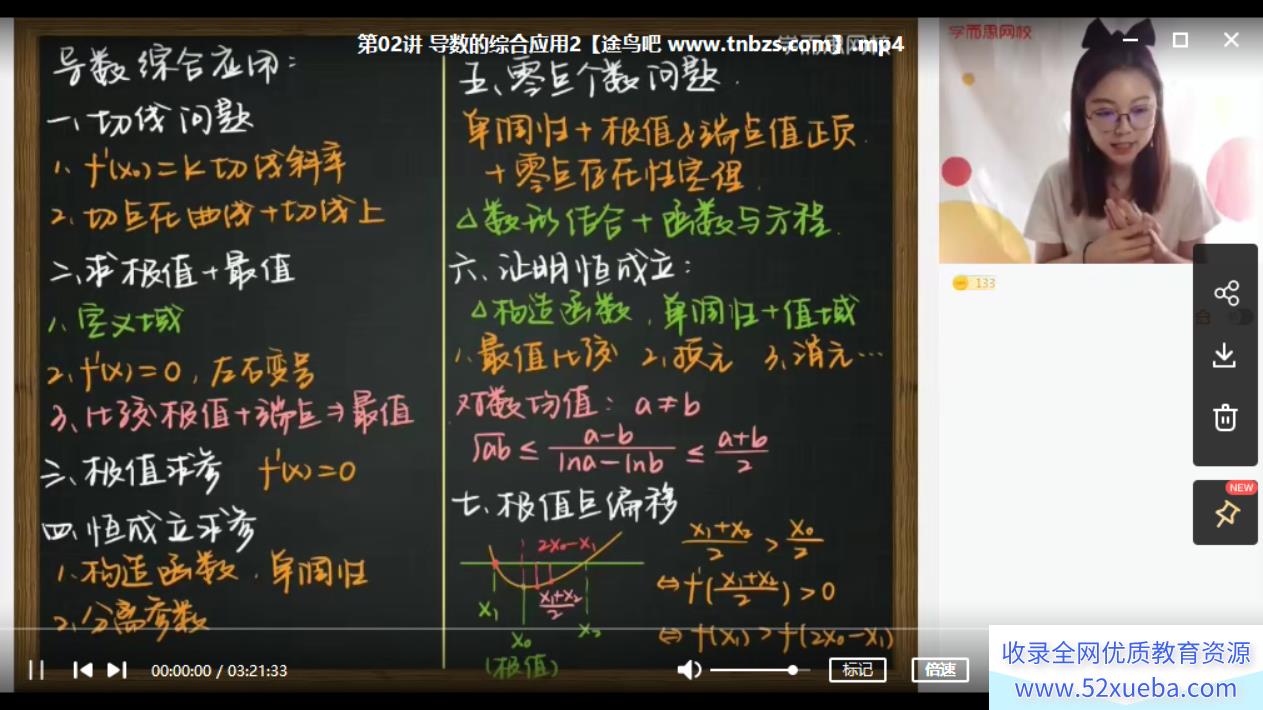 第02讲 导数的综合应用2【途鸟吧 www.tnbzs.com】.mp4
学而思网校
学而思网校
导数综合应用：
一、切线问题
1. f'(x₀)=k 切线斜率
2. 切点在曲线+切线上
二、求极值+最值
1. 定义域
2. f'(x)=0，左右变号
3. 比较极值+端点⇒最值
三、极值求参 f'(x)=0
四、恒成立求参
1. 构造函数，单调性
2. 分离参数
五、零点个数问题.
单调性+极值&端点值正负.
+零点存在性定理.
△数形结合+函数与方程.
六、证明恒成立：
△构造函数，单调性+值域
1. 最值比较 2. 换元 3. 消元…
对数均值：a≠b
√ab ≤ (a-b)/(lna-lnb) ≤ (a+b)/2
七、极值点偏移
2x₀-x₁
(x₁+x₂)/2
x₁
x₂
x₀
(极值)
(x₁+x₂)/2 > x₀/2
⇔ f'((x₁+x₂)/2) > 0
⇔ f(x₁) > f(2x₀-x₁)
133
NEW
00:00:00 / 03:21:33
标记
倍速
收录全网优质教育资源
www.52xueba.com